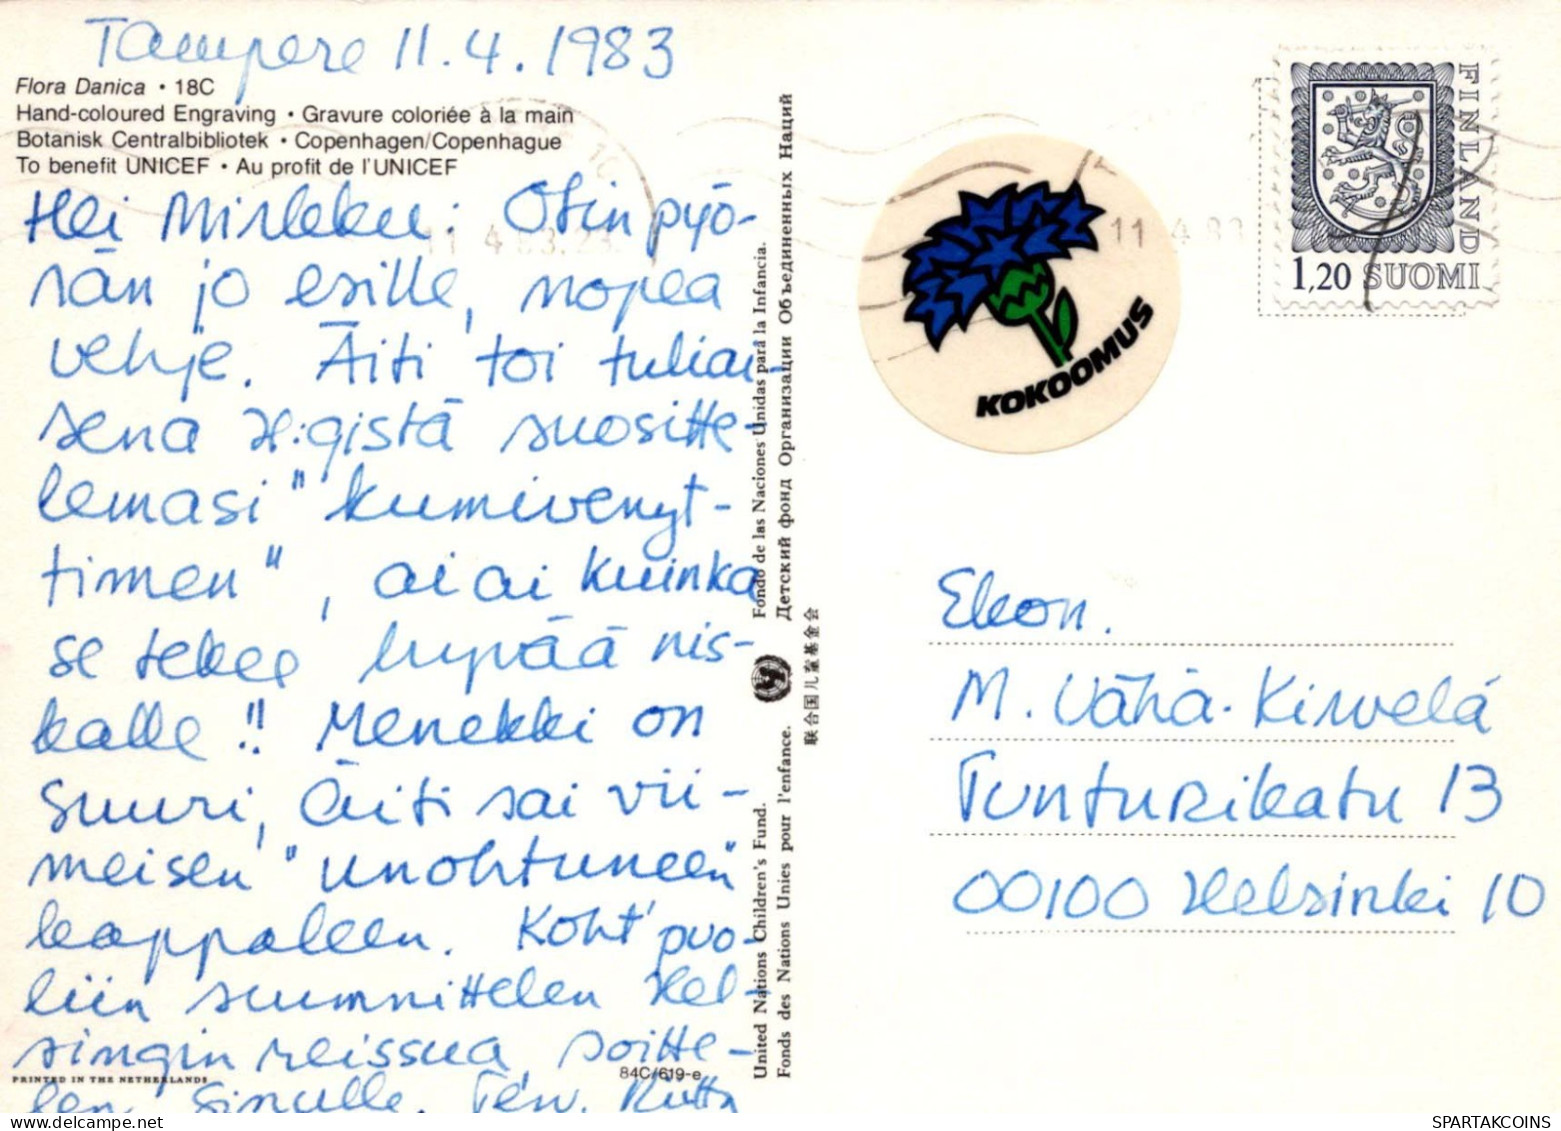 Tampere 11.4.1983
Flora Danica • 18C
Hand-coloured Engraving • Gravure coloriée à la main
Botanisk Centralbibliotek • Copenhagen/Copenhague
To benefit UNICEF • Au profit de l'UNICEF
Hei Mirkku: Otin pyö-
rän jo esille, nopea
vehje. Äiti toi tuliai-
sena H:gistä suositte-
lemasi "kumivenyt-
timen", ai ai kuinka
se tekee hyvää nis-
kalle!! Menekki on
suuri, Äiti sai vii-
meisen "unohtuneen"
kappaleen. Koht' puo-
liin summittelen Hel-
singin reissua, soitte-
len Sinulle. Terv. Riitta
PRINTED IN THE NETHERLANDS
84C/619-e
United Nations Children's Fund. Fondo de las Naciones Unidas para la Infancia.
Fonds des Nations Unies pour l'enfance. Детский фонд Организации Объединенных Наций
联合国儿童基金会
KOKOOMUS
11 4 83.23
11 4 83
FINLAND
1,20 SUOMI
Ekon.
M. Vähä-Kirvelä
Tunturikatu 13
00100 Helsinki 10
SPARTAKCOINS.COM